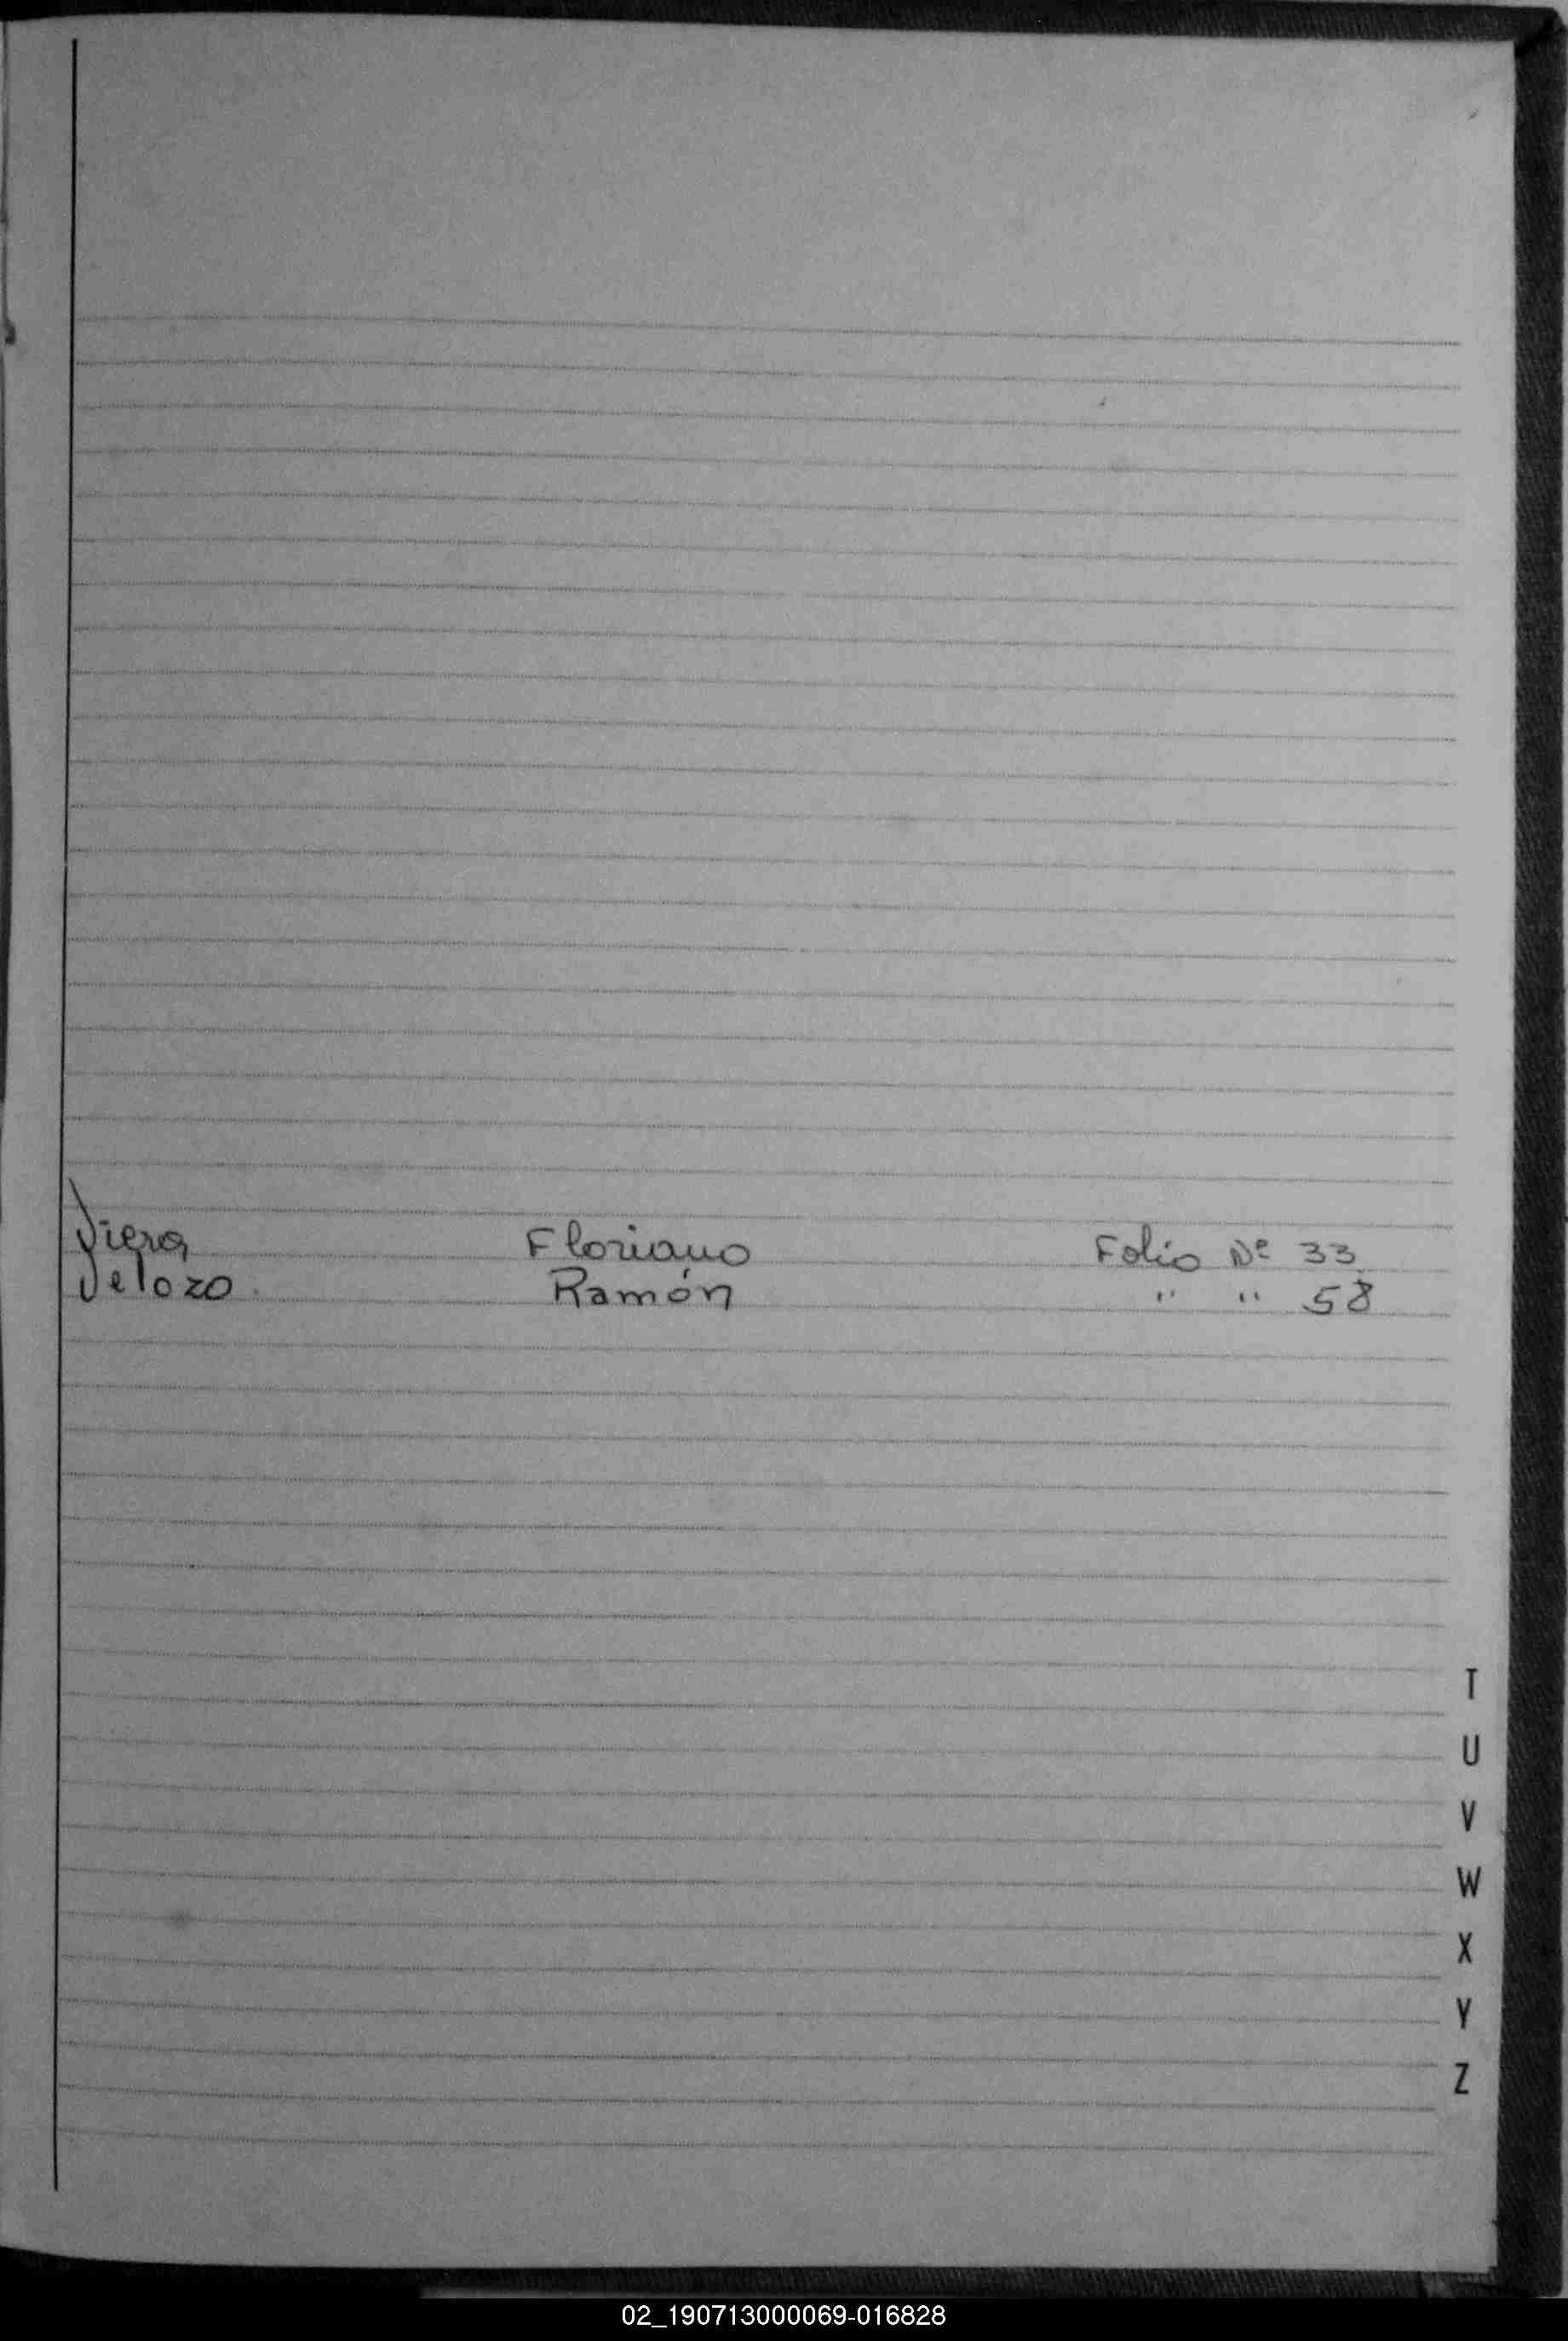 Viera Floriano Folio Nº 33
Velozo. Ramón " " 58
T
U
V
W
X
Y
Z
02_190713000069-016828